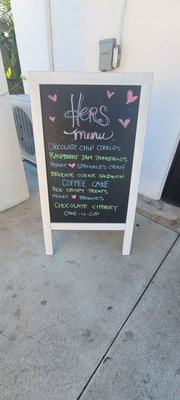 Hers
menu
Chocolate Chip Cookies
Raspberry Jam Thumbprints
Heart ♥ Sprinkles Cookie
Brookie Cookie Sandwich
Coffee Cake
Rice Crispy Treats
Heart ♥ Brownies
Chocolate Cherry
Cake-n-Cup